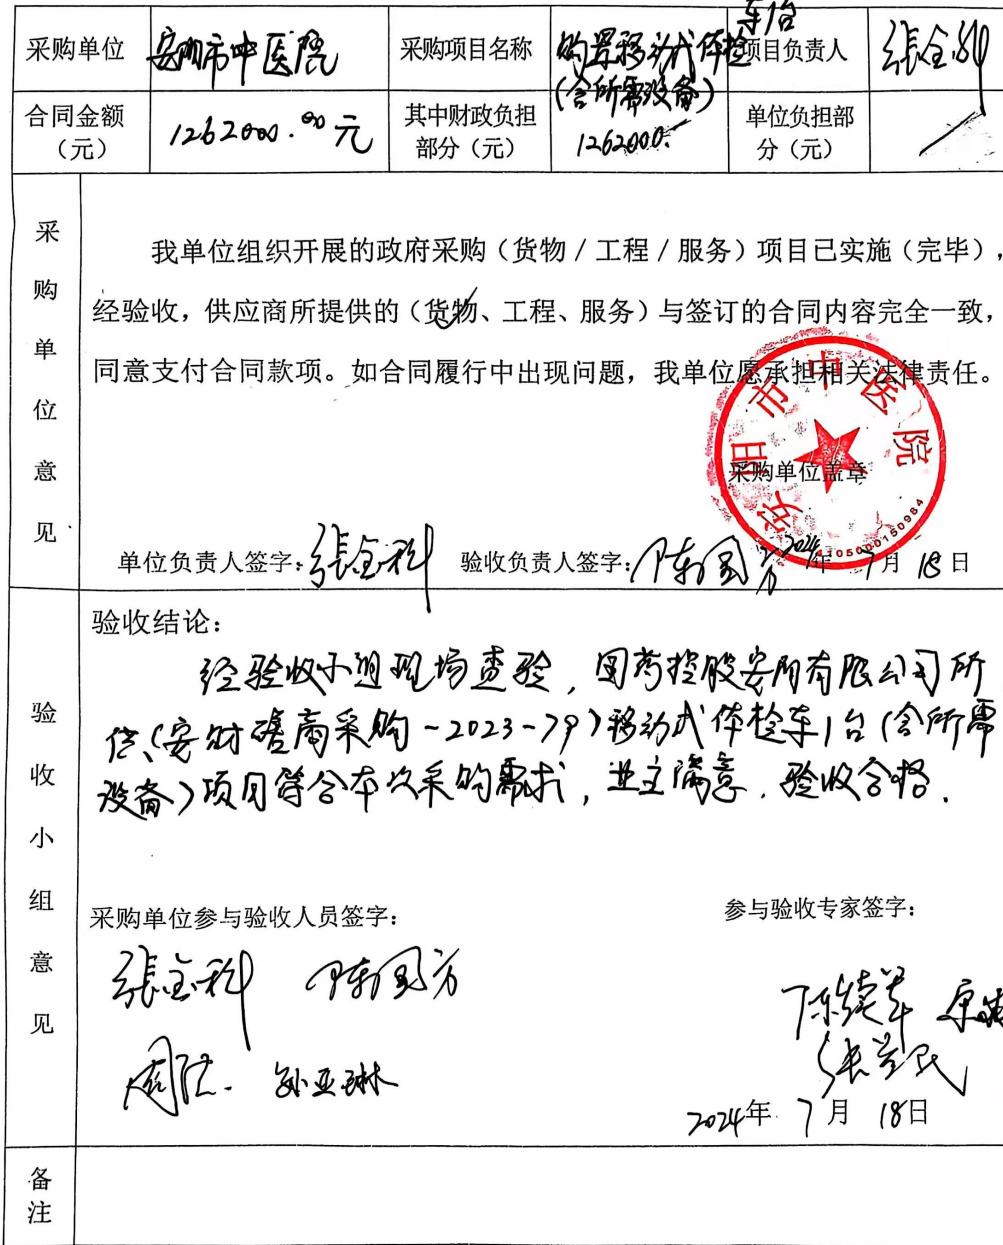 采购单位 安阳市中医院 采购项目名称 购置移动式体检车1台（含所需设备） 项目负责人 張全科
合同金额（元） 1262000.00元 其中财政负担部分（元） 1262000. 单位负担部分（元）
采购单位意见
我单位组织开展的政府采购（货物／工程／服务）项目已实施（完毕），
经验收，供应商所提供的（货物、工程、服务）与签订的合同内容完全一致，
同意支付合同款项。如合同履行中出现问题，我单位愿承担相关法律责任。
安阳市中医院
采购单位盖章
4105000150984
单位负责人签字：張全科 验收负责人签字：陈国方 2024年7月18日
验收小组意见
验收结论：
经验收小组现场查验，国药控股安阳有限公司所
供（安财磋商采购-2023-79）移动式体检车1台（含所需
设备）项目符合本次采购需求，业主满意，验收合格。
采购单位参与验收人员签字： 参与验收专家签字：
張全科 陈国方
孙亚琳
2024年7月18日
备注